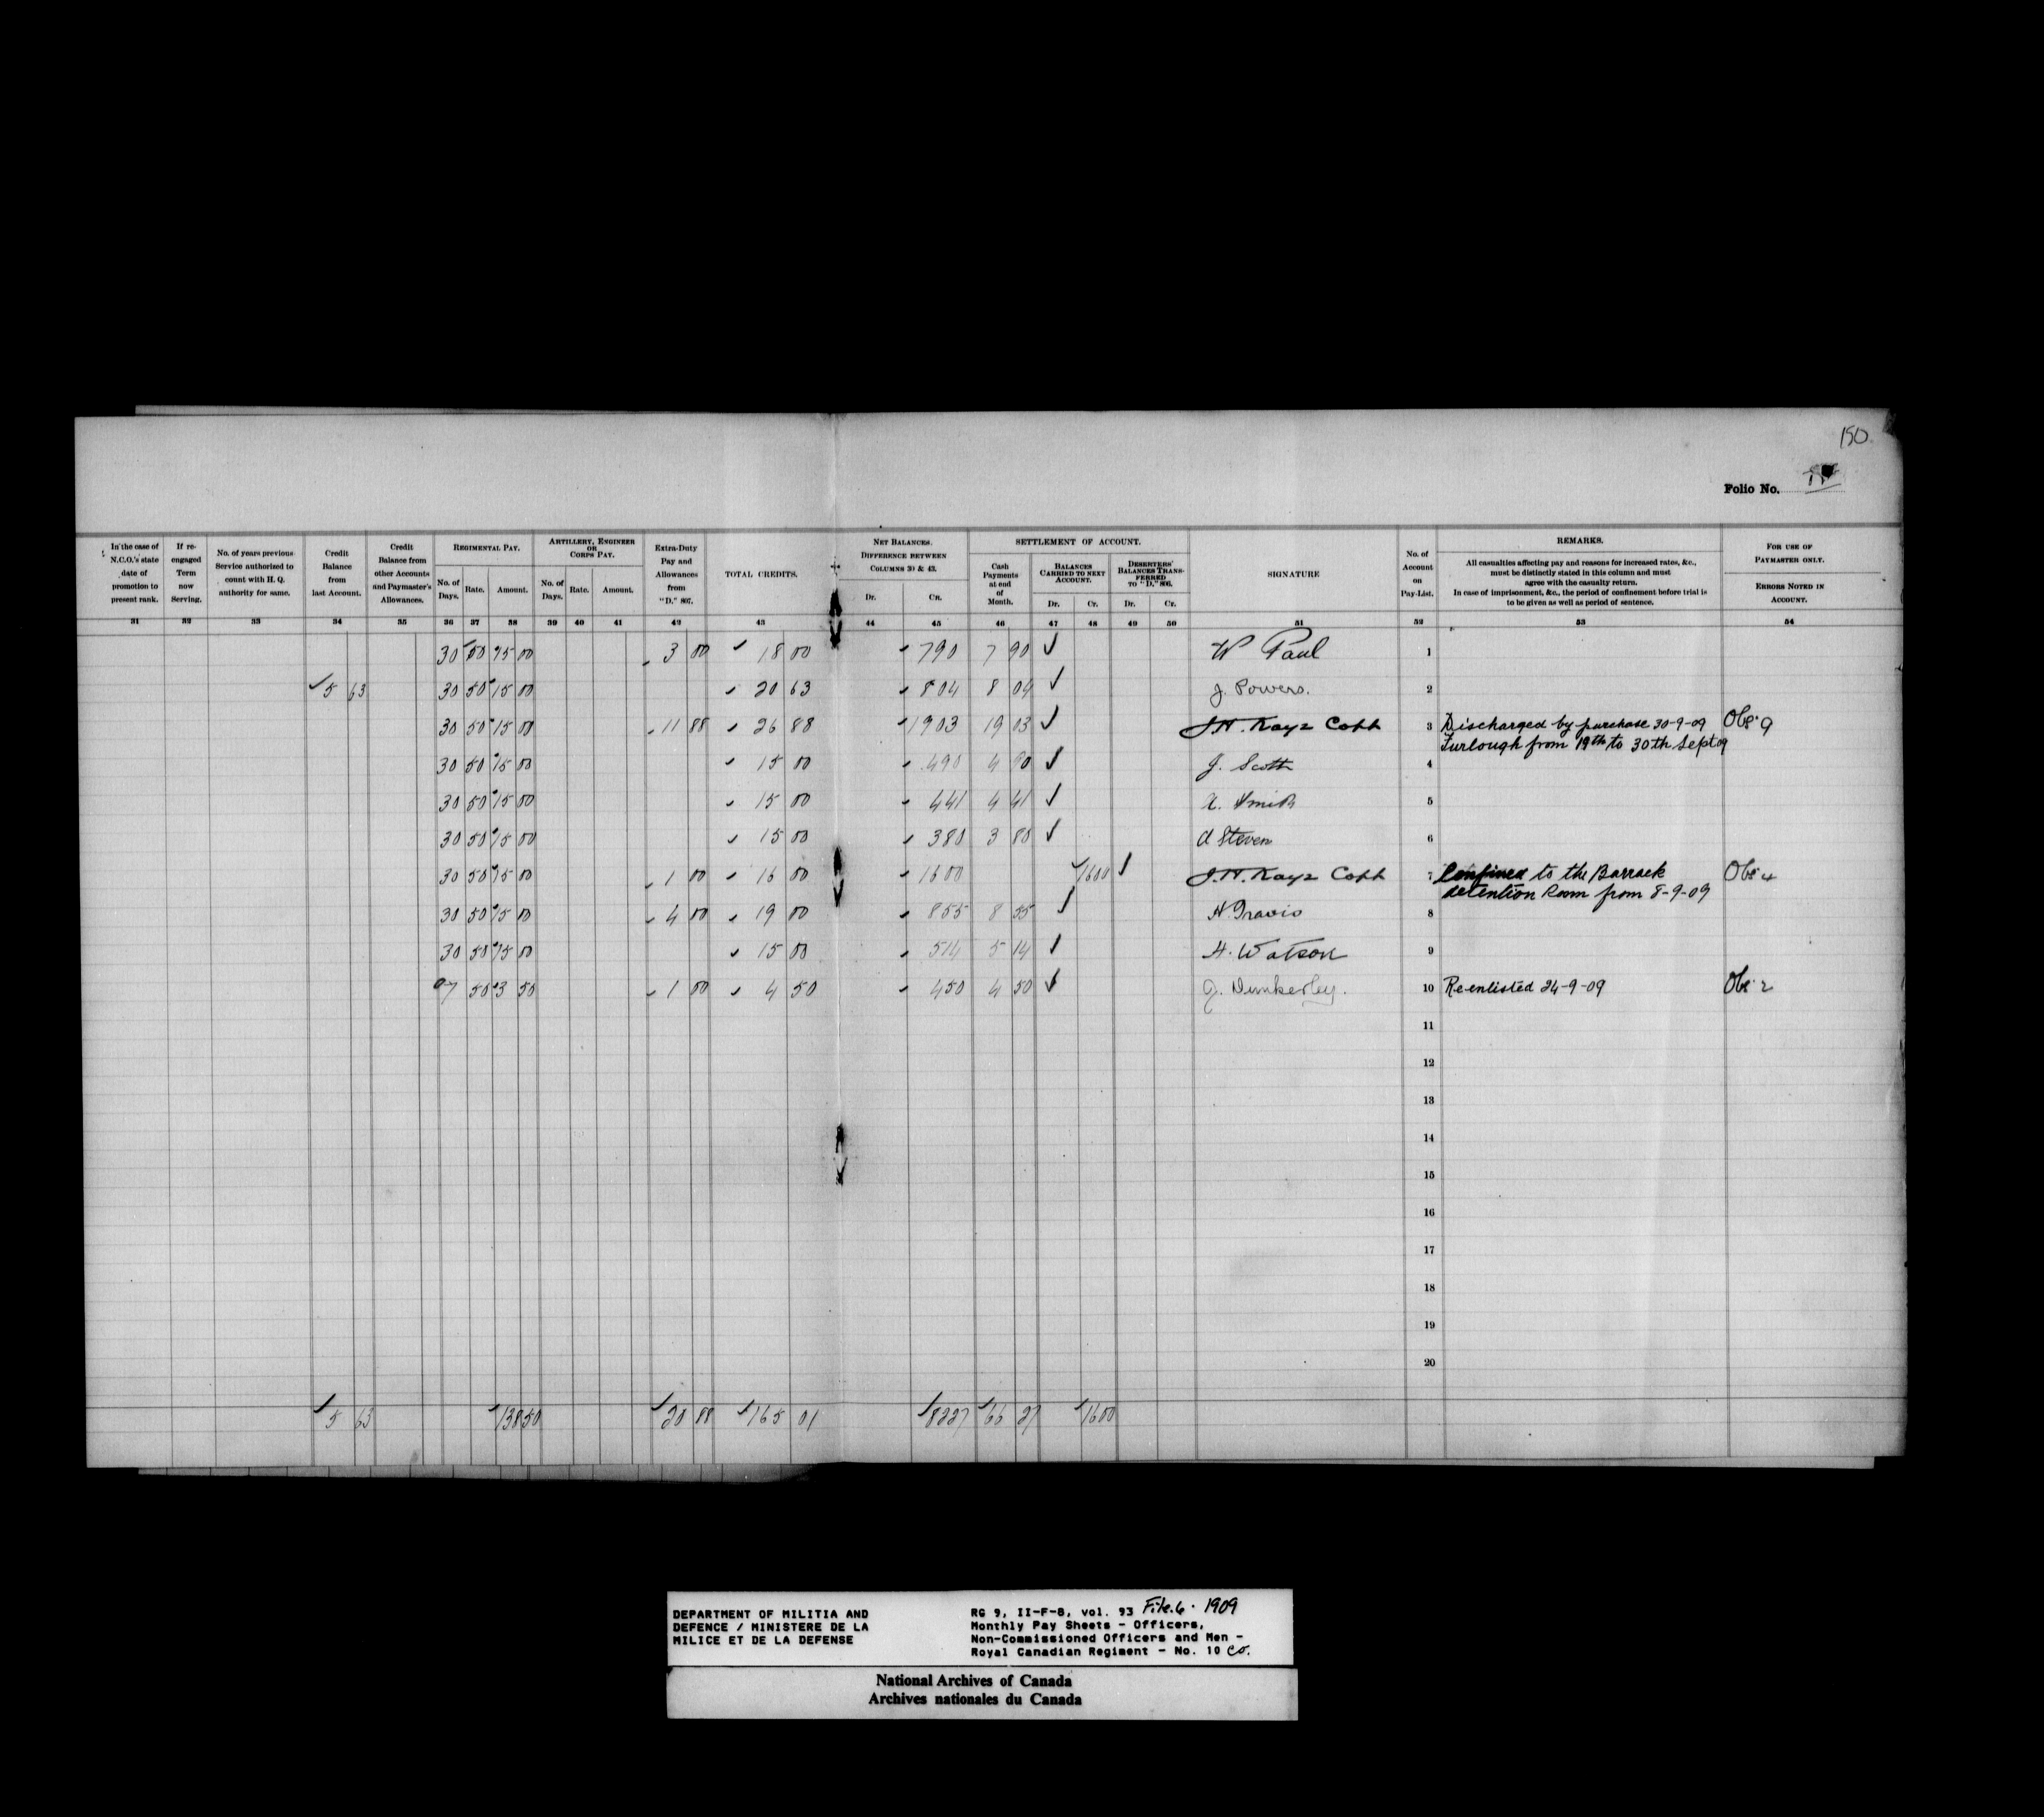 150
Folio No.
In the case of N.C.O.'s state date of promotion to present rank.
If re-engaged Term now Serving.
No. of years previous Service authorized to count with H. Q. authority for same.
Credit Balance from last Account.
Credit Balance from other Accounts and Paymaster's Allowances.
REGIMENTAL PAY.
No. of Days. Rate. Amount.
ARTILLERY, ENGINEER OR CORPS PAY.
No. of Days. Rate. Amount.
Extra-Duty Pay and Allowances from "D." 807.
TOTAL CREDITS.
NET BALANCES.
DIFFERENCE BETWEEN COLUMNS 30 & 43.
Dr. Cr.
SETTLEMENT OF ACCOUNT.
Cash Payments at end of Month.
BALANCES CARRIED TO NEXT ACCOUNT.
Dr. Cr.
DESERTERS' BALANCES TRANSFERRED TO "D." 806.
Dr. Cr.
SIGNATURE
No. of Account on Pay-List.
REMARKS.
All casualties affecting pay and reasons for increased rates, &c.,
must be distinctly stated in this column and must
agree with the casualty return.
In case of imprisonment, &c., the period of confinement before trial is
to be given as well as period of sentence.
FOR USE OF PAYMASTER ONLY.
ERRORS NOTED IN ACCOUNT.
31 32 33 34 35 36 37 38 39 40 41 42 43 44 45 46 47 48 49 50 51 52 53 54
30 50 15 00 3 00 18 00 7 90 7 90 W Paul 1
5 63 30 50 15 00 20 63 8 04 8 04 J. Powers. 2
30 50 15 00 11 88 26 88 19 03 19 03 J.H. Kaye Capt 3 Discharged by purchase 30-9-09 Obs 9
Furlough from 19th to 30th Sept 09
30 50 15 00 15 00 4 90 4 90 J. Scott 4
30 50 15 00 15 00 4 41 4 41 Smith 5
30 50 15 00 15 00 3 80 3 80 A Steven 6
30 50 15 00 1 00 16 00 16 00 16 00 J.H. Kaye Capt 7 Confined to the Barrack Obs 4
detention Room from 8-9-09
30 50 15 00 4 00 19 00 8 55 8 55 H. Travis 8
30 50 15 00 15 00 5 14 5 14 H. Watson 9
7 50 3 50 1 00 4 50 4 50 4 50 J. Dunkerley. 10 Re-enlisted 24-9-09 Obs 2
11
12
13
14
15
16
17
18
19
20
5 63 138 50 20 88 165 01 82 27 66 27 16 00
DEPARTMENT OF MILITIA AND
DEFENCE / MINISTERE DE LA
MILICE ET DE LA DEFENSE
RG 9, II-F-8, vol. 93 File.6. 1909
Monthly Pay Sheets - Officers,
Non-Commissioned Officers and Men -
Royal Canadian Regiment - No. 10 Co.
National Archives of Canada
Archives nationales du Canada